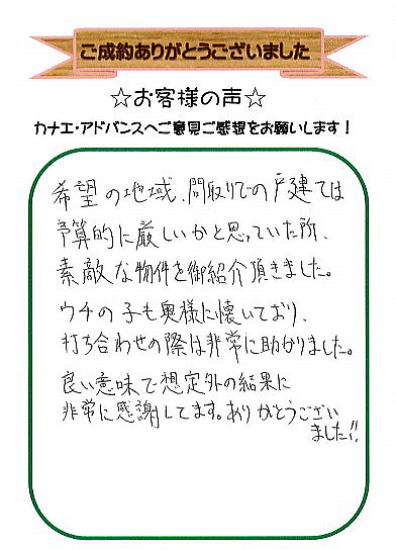 ご成約ありがとうございました
☆お客様の声☆
カナエ・アドバンスへご意見ご感想をお願いします！
希望の地域、間取りでの戸建ては
予算的に厳しいかと思っていた所、
素敵な物件を御紹介頂きました。
ウチの子も奥様に懐いており、
打ち合わせの際は非常に助かりました。
良い意味で想定外の結果に
非常に感謝してます。ありがとうござい
ました!!